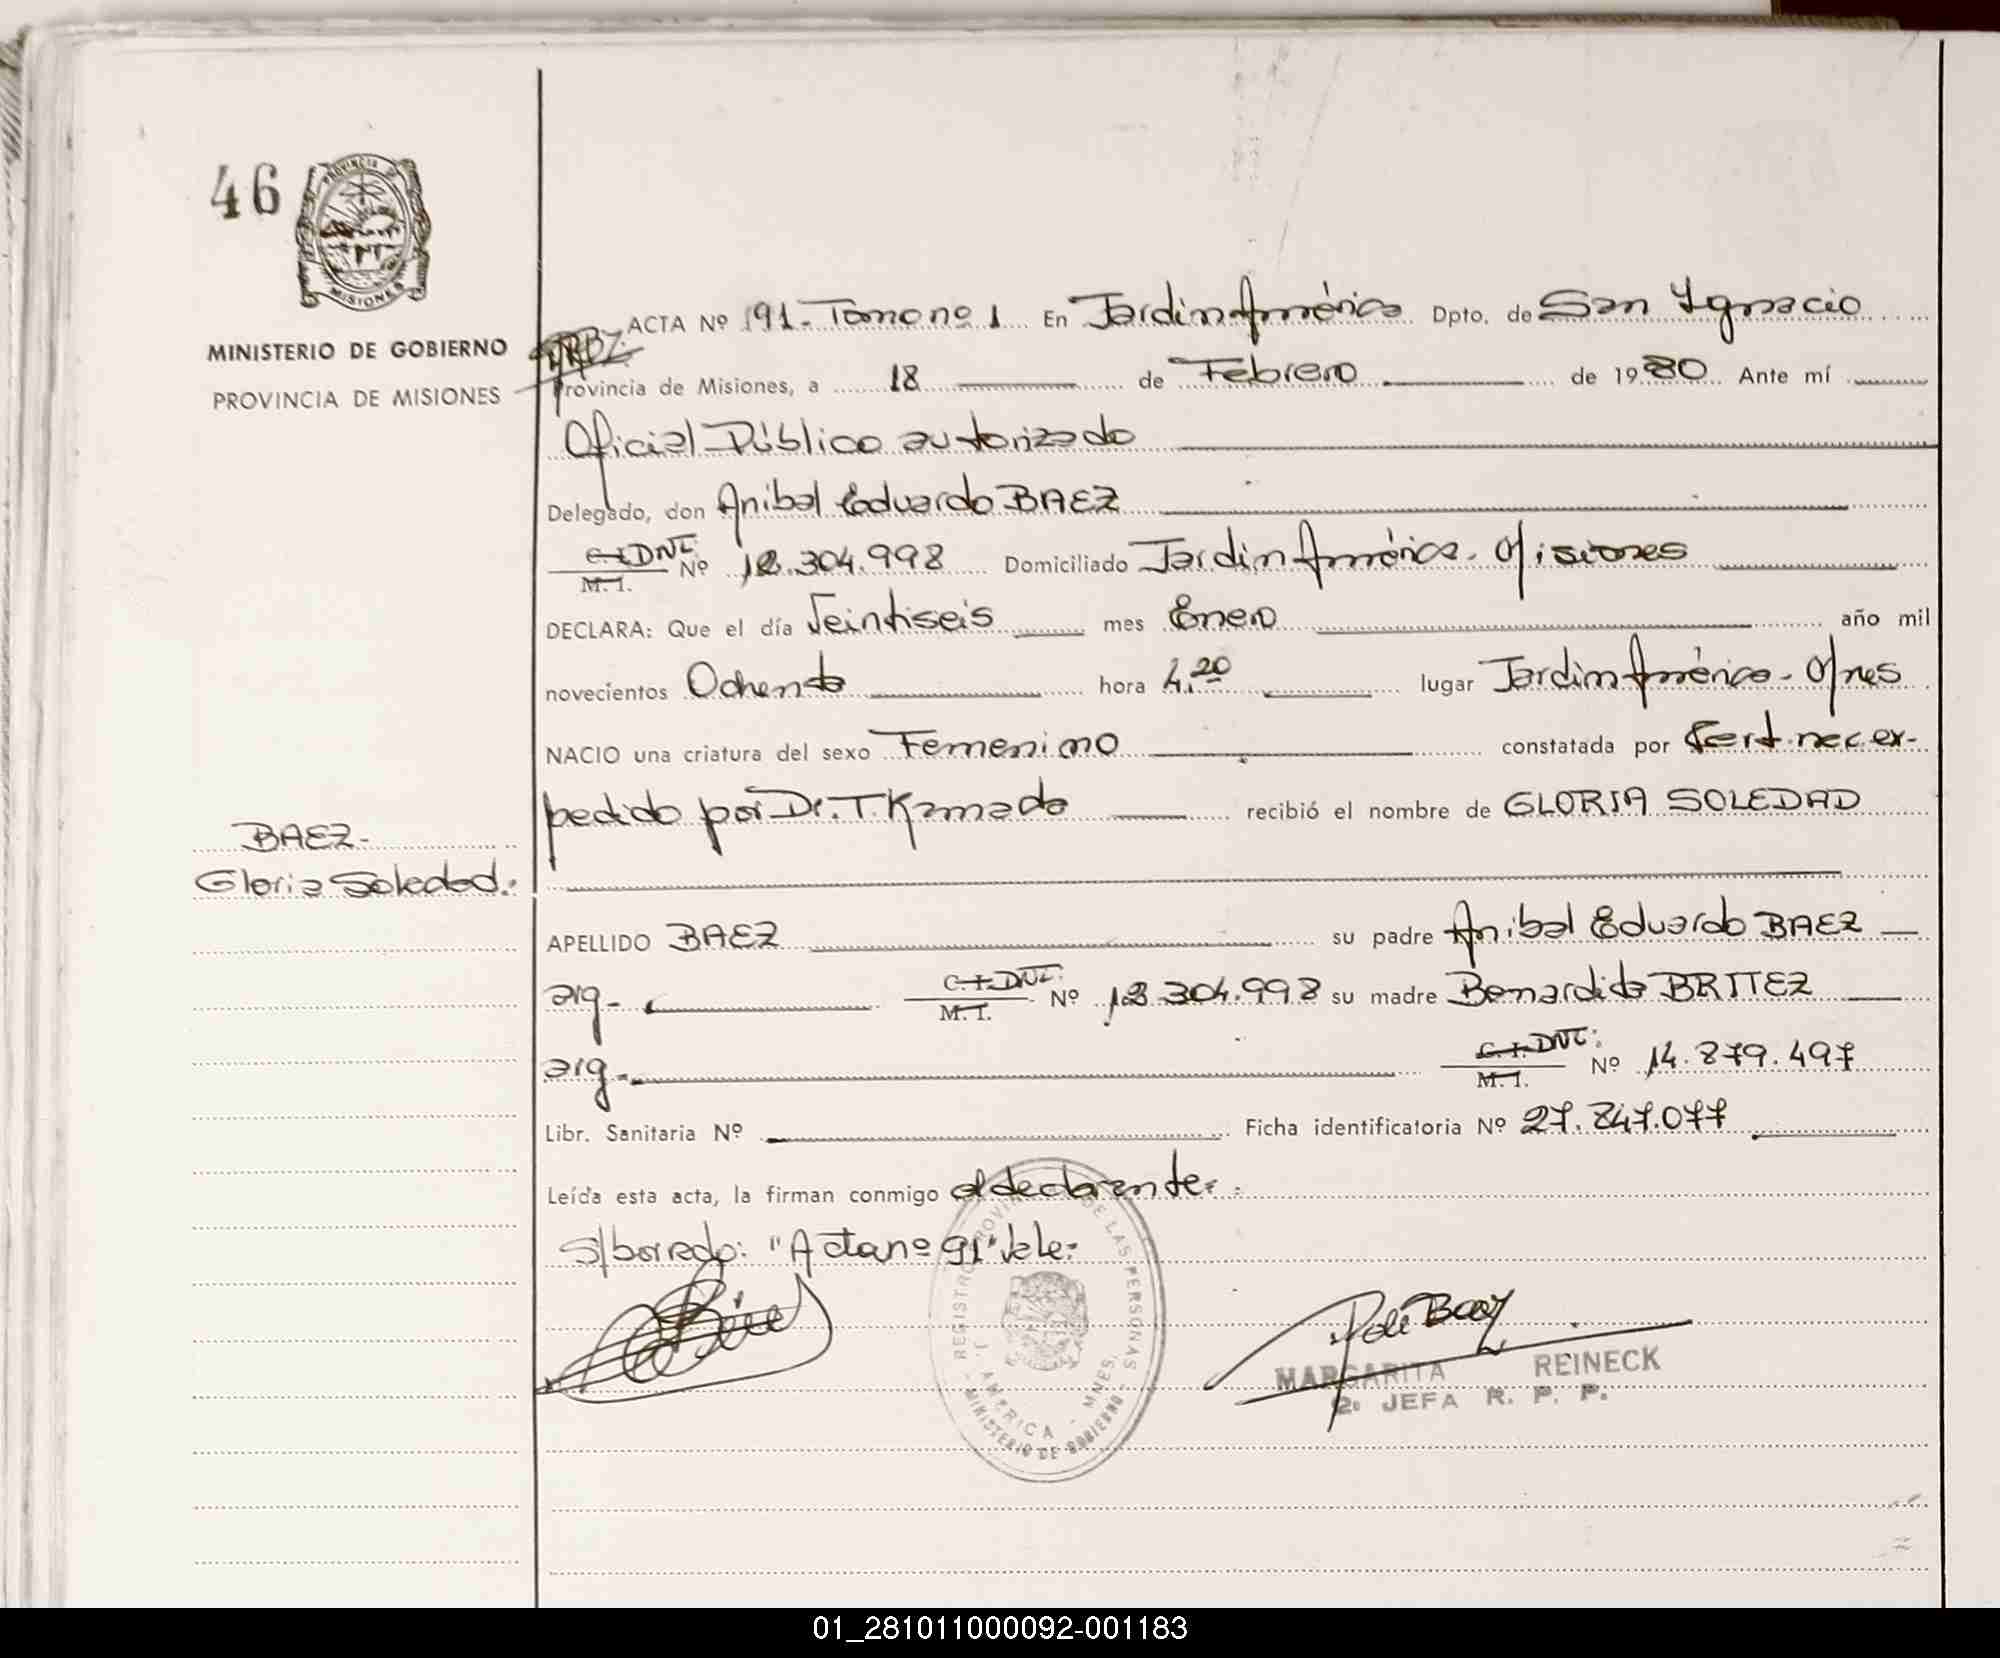 46
PROVINCIA
MISIONES
MINISTERIO DE GOBIERNO
PROVINCIA DE MISIONES
ACTA Nº 91. Tomo nº 1 En Jardin América Dpto. de San Ignacio
Provincia de Misiones, a 18 de Febrero de 1980 Ante mí
Oficial Público autorizado
Delegado, don Anibal Eduardo BAEZ
C.I. DNI: M.I. Nº 12.304.998 Domiciliado Jardin América. Misiones
DECLARA: Que el día Veintiseis mes Enero año mil
novecientos Ochenta hora 4.20 lugar Jardin América - Mnes
NACIO una criatura del sexo Femenino constatada por Cert. nac. ex-
pedido por Dr. T. Kamada recibió el nombre de GLORIA SOLEDAD
BAEZ-
Gloria Soledad.
APELLIDO BAEZ su padre Anibal Eduardo BAEZ
arg- C.I. DNI: M.I. Nº 12.304.998 su madre Bernardida BRITEZ
arg- C.I. DNI: M.I. Nº 14.879.497
Libr. Sanitaria Nº Ficha identificatoria Nº 27.847.077
Leída esta acta, la firman conmigo el declarante.
s/borrado: "Acta nº 91" Vale:
REGISTRO PROVINCIAL DE LAS PERSONAS
J. AMERICA - MNES.
- MINISTERIO DE GOBIERNO -
MARGARITA REINECK
2º JEFA R. P. P.
01_281011000092-001183